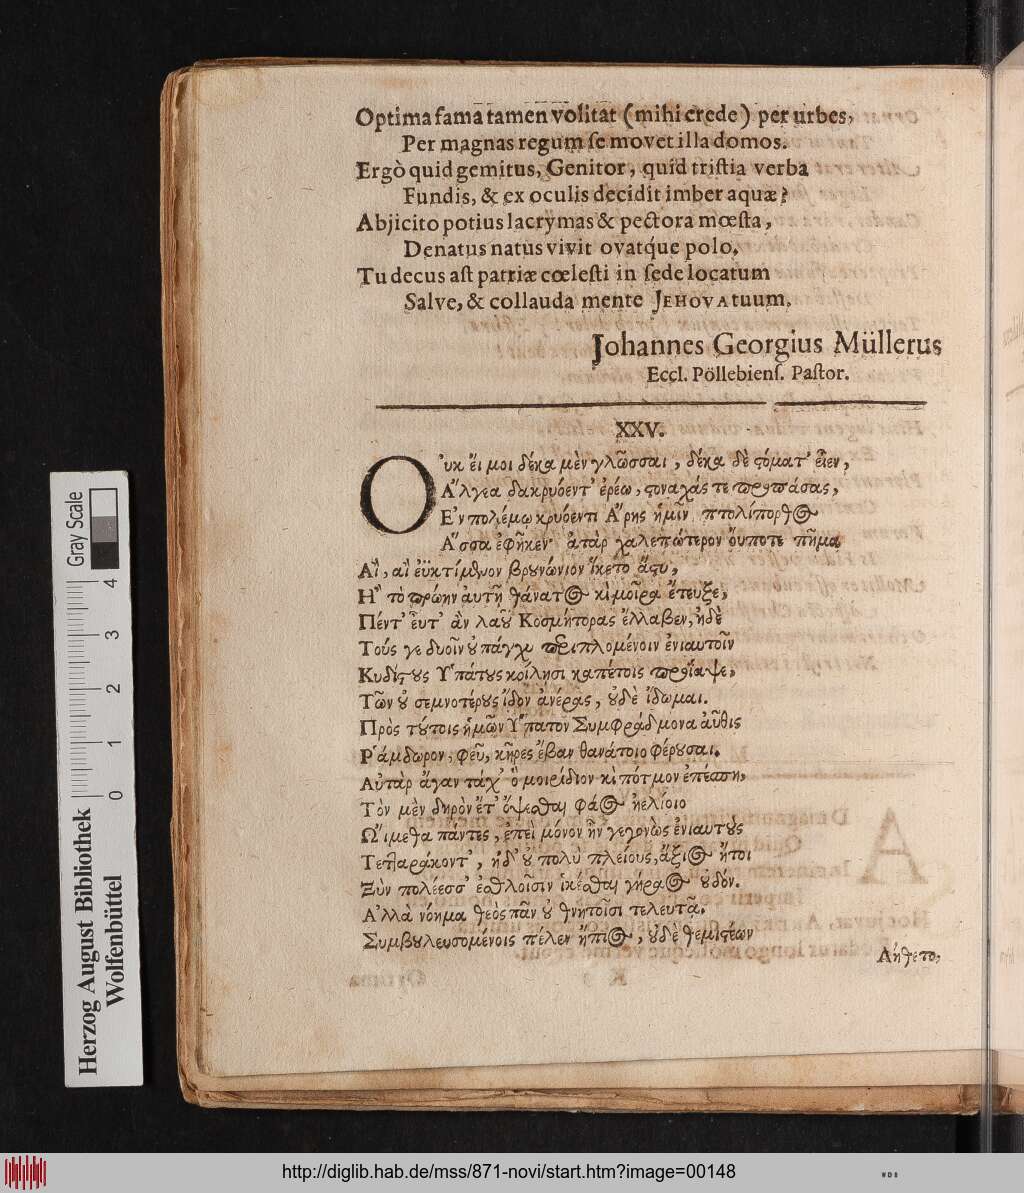 Optima fama tamen volitat (mihi crede) per urbes,
Per magnas regum se movet illa domos.
Ergò quid gemitus, Genitor, quid tristia verba
Fundis, & ex oculis decidit imber aquæ?
Abjicito potius lacrymas & pectora mœsta,
Denatus natus vivit ovatq́ue polo.
Tu decus ast patriæ cœlesti in sede locatum
Salve, & collauda mente JEHOVA tuum.
Johannes Georgius Müllerus
Eccl. Pöllebiens. Pastor.
XXV.
Οὐκ εἴ μοι δέκα μὲν γλῶσσαι, δέκα δὲ ςόματ' εἶεν,
Ἄλγεα δακρυόεντ' ἐρέω, ςοναχάς τε προπάσας,
Ἐν πολέμῳ κρυόεντι Ἄρης ἡμῖν πτολίπορθος
Ἄσσα ἐφῆκεν· ἀτὰρ χαλεπώτερον οὔποτε πῆμα
Αἲ, αἲ ἐϋκτίμενον βρουνώνιον ἵκετο ἄςυ,
Ἢ τὸ πρώην αυτῆ θάνατος κὶ μοῖρα ἔτευξε,
Πέντ' εὖτ' ἂν λαοῦ Κοσμήτορας ἔλλαβεν, ἠδὲ
Τούς γε δυοῖν οὐ πάγχυ περιπλομένοιν ἐνιαυτοῖν
Κυδίςους Ὑπάτους κοίλησι καπέτοις προΐαψε,
Τῶν οὐ σεμνοτέρους ἴδον ἀνέρας, οὐδὲ ἴδωμαι.
Πρὸς τούτοις ἡμῶν Ὕπατον Συμφράδμονα αὖθις
Ῥάμδωρον, φεῦ, κῆρες ἔβαν θανάτοιο φέρουσαι.
Αὐτὰρ ἄγαν τάχ' ὃ μοιρίδιον κὶ πότμον ἐπέσπη,
Τὸν μὲν δηρὸν ἔτ' ὄψεσθαι φάος ἠελίοιο
Ὠΐμεθα πάντες, ἐπεὶ μόνον ἦν γεγονὼς ἐνιαυτοὺς
Τετταράκοντ', ἠδ' οὐ πολὺ πλείους, ἄξιος ἤτοι
Ξὺν πολέεσσ' ἐσθλοῖσιν ἱκέσθαι γήραος οὐδόν.
Ἀλλὰ νόημα θεὸς πᾶν οὐ θνητοῖσι τελευτᾶ.
Συμβουλευσομένοις πέλεν ἤπιος, οὐδὲ θεμιςέων
Λήθετο,
Herzog August Bibliothek
Wolfenbüttel
Gray Scale
0 1 2 3 4
http://diglib.hab.de/mss/871-novi/start.htm?image=00148